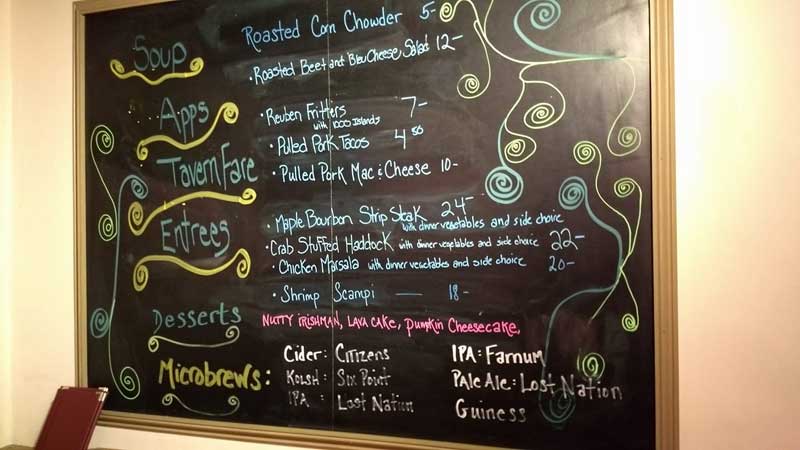 Soup
Roasted Corn Chowder 5-
• Roasted Beet and Bleu Cheese Salad 12-
Apps
• Reuben Fritters 7-
with 1000 Islands
• Pulled Pork Tacos 4 50
Tavern Fare
• Pulled Pork Mac & Cheese 10-
Entrees
• Maple Bourbon Strip Steak 24-
with dinner vegetables and side choice
• Crab Stuffed Haddock with dinner vegetables and side choice 22-
• Chicken Marsala with dinner vegetables and side choice 20-
• Shrimp Scampi — 18-
Desserts
Nutty Irishman, Lava Cake, Pumpkin Cheesecake,
Microbrews:
Cider: Citizens
Kolsh: Six Point
IPA: Lost Nation
IPA: Farnum
Pale Ale: Lost Nation
Guiness